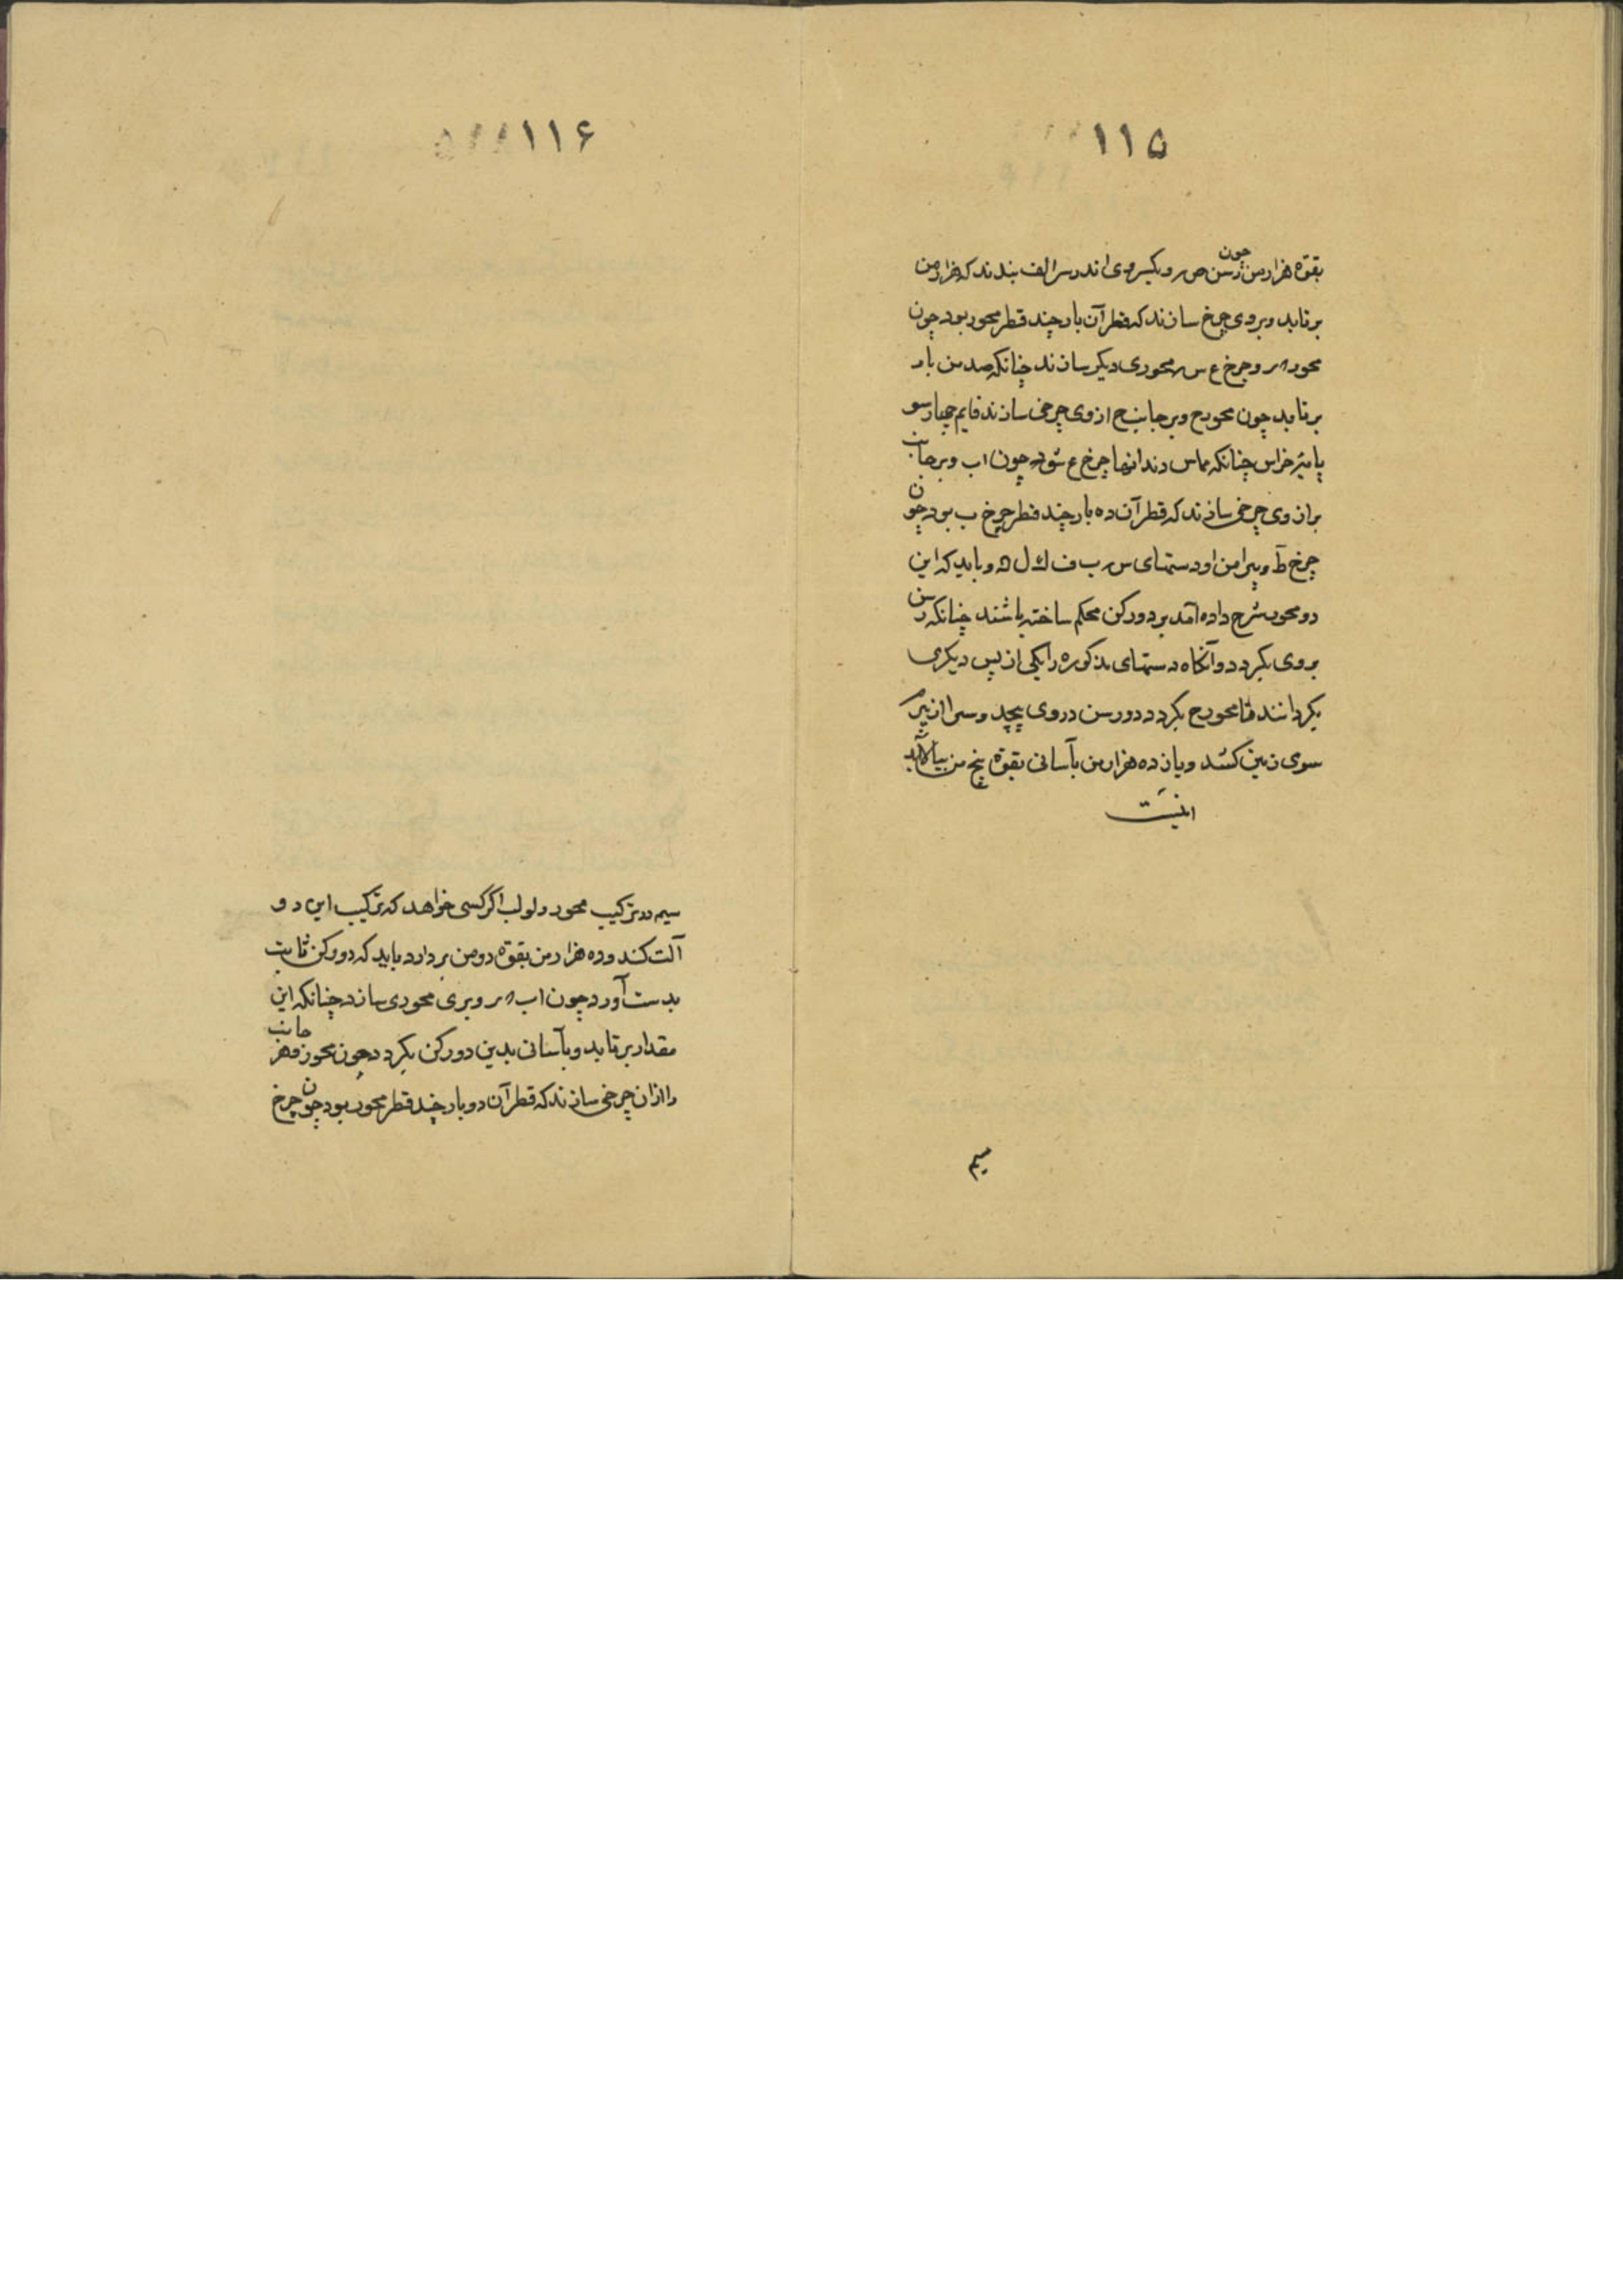 ۱۱۵
بقوة هزار من چون رسن ص ر ویکسر وی اندر سر الف بندند که هزار من
برتابد و بر وی چرخ سازند که قطر آن بار چند قطر محور بود چون
محور ه ر و چرخ ع س ر محوری دیکر سازند چنانکه صد من بار
برتابد چون محور ح و بر جانب ح از وی چرخی سازند قایم چهار سو
یا میز خراس چنانکه مماس دندانها چرخ ع شود چون اب و بر جانب
بر از وی چرخی سازند که قطر آن ده بار چند قطر چرخ ب بود چون
چرخ ط و پیرامن او دستهای س ر ب ف ك ل ه و باید که این
دو محور شرح داده آمد بر دو رکن محکم ساخته باشند چنانکه رسن
بر وی بکردد و آنکاه دستهای مذکوره را یکی از پس دیکری
بکردانند تا محور ح بکردد و رسن در وی پیچد و سر از تیر
سوی زمین کشد و بار ده هزار من بآسانی بقوة پنج من ببالا آید
اینست
سیم
۱۱۶
سیم در ترکیب محور و لولب اکر کسی خواهد که ترکیب این دو
آلت کند و ده هزار من بقوة دو من بردارد باید که دو رکن ثابت
بدست آورد چون اب ه ر و بری محوری سازد چنانکه این
مقدار برتابد و بآسانی بدین دو رکن بکردد چون محور و هر جانب
را ازان چرخی سازند که قطر آن دو بار چند قطر محور بود چون چرخ